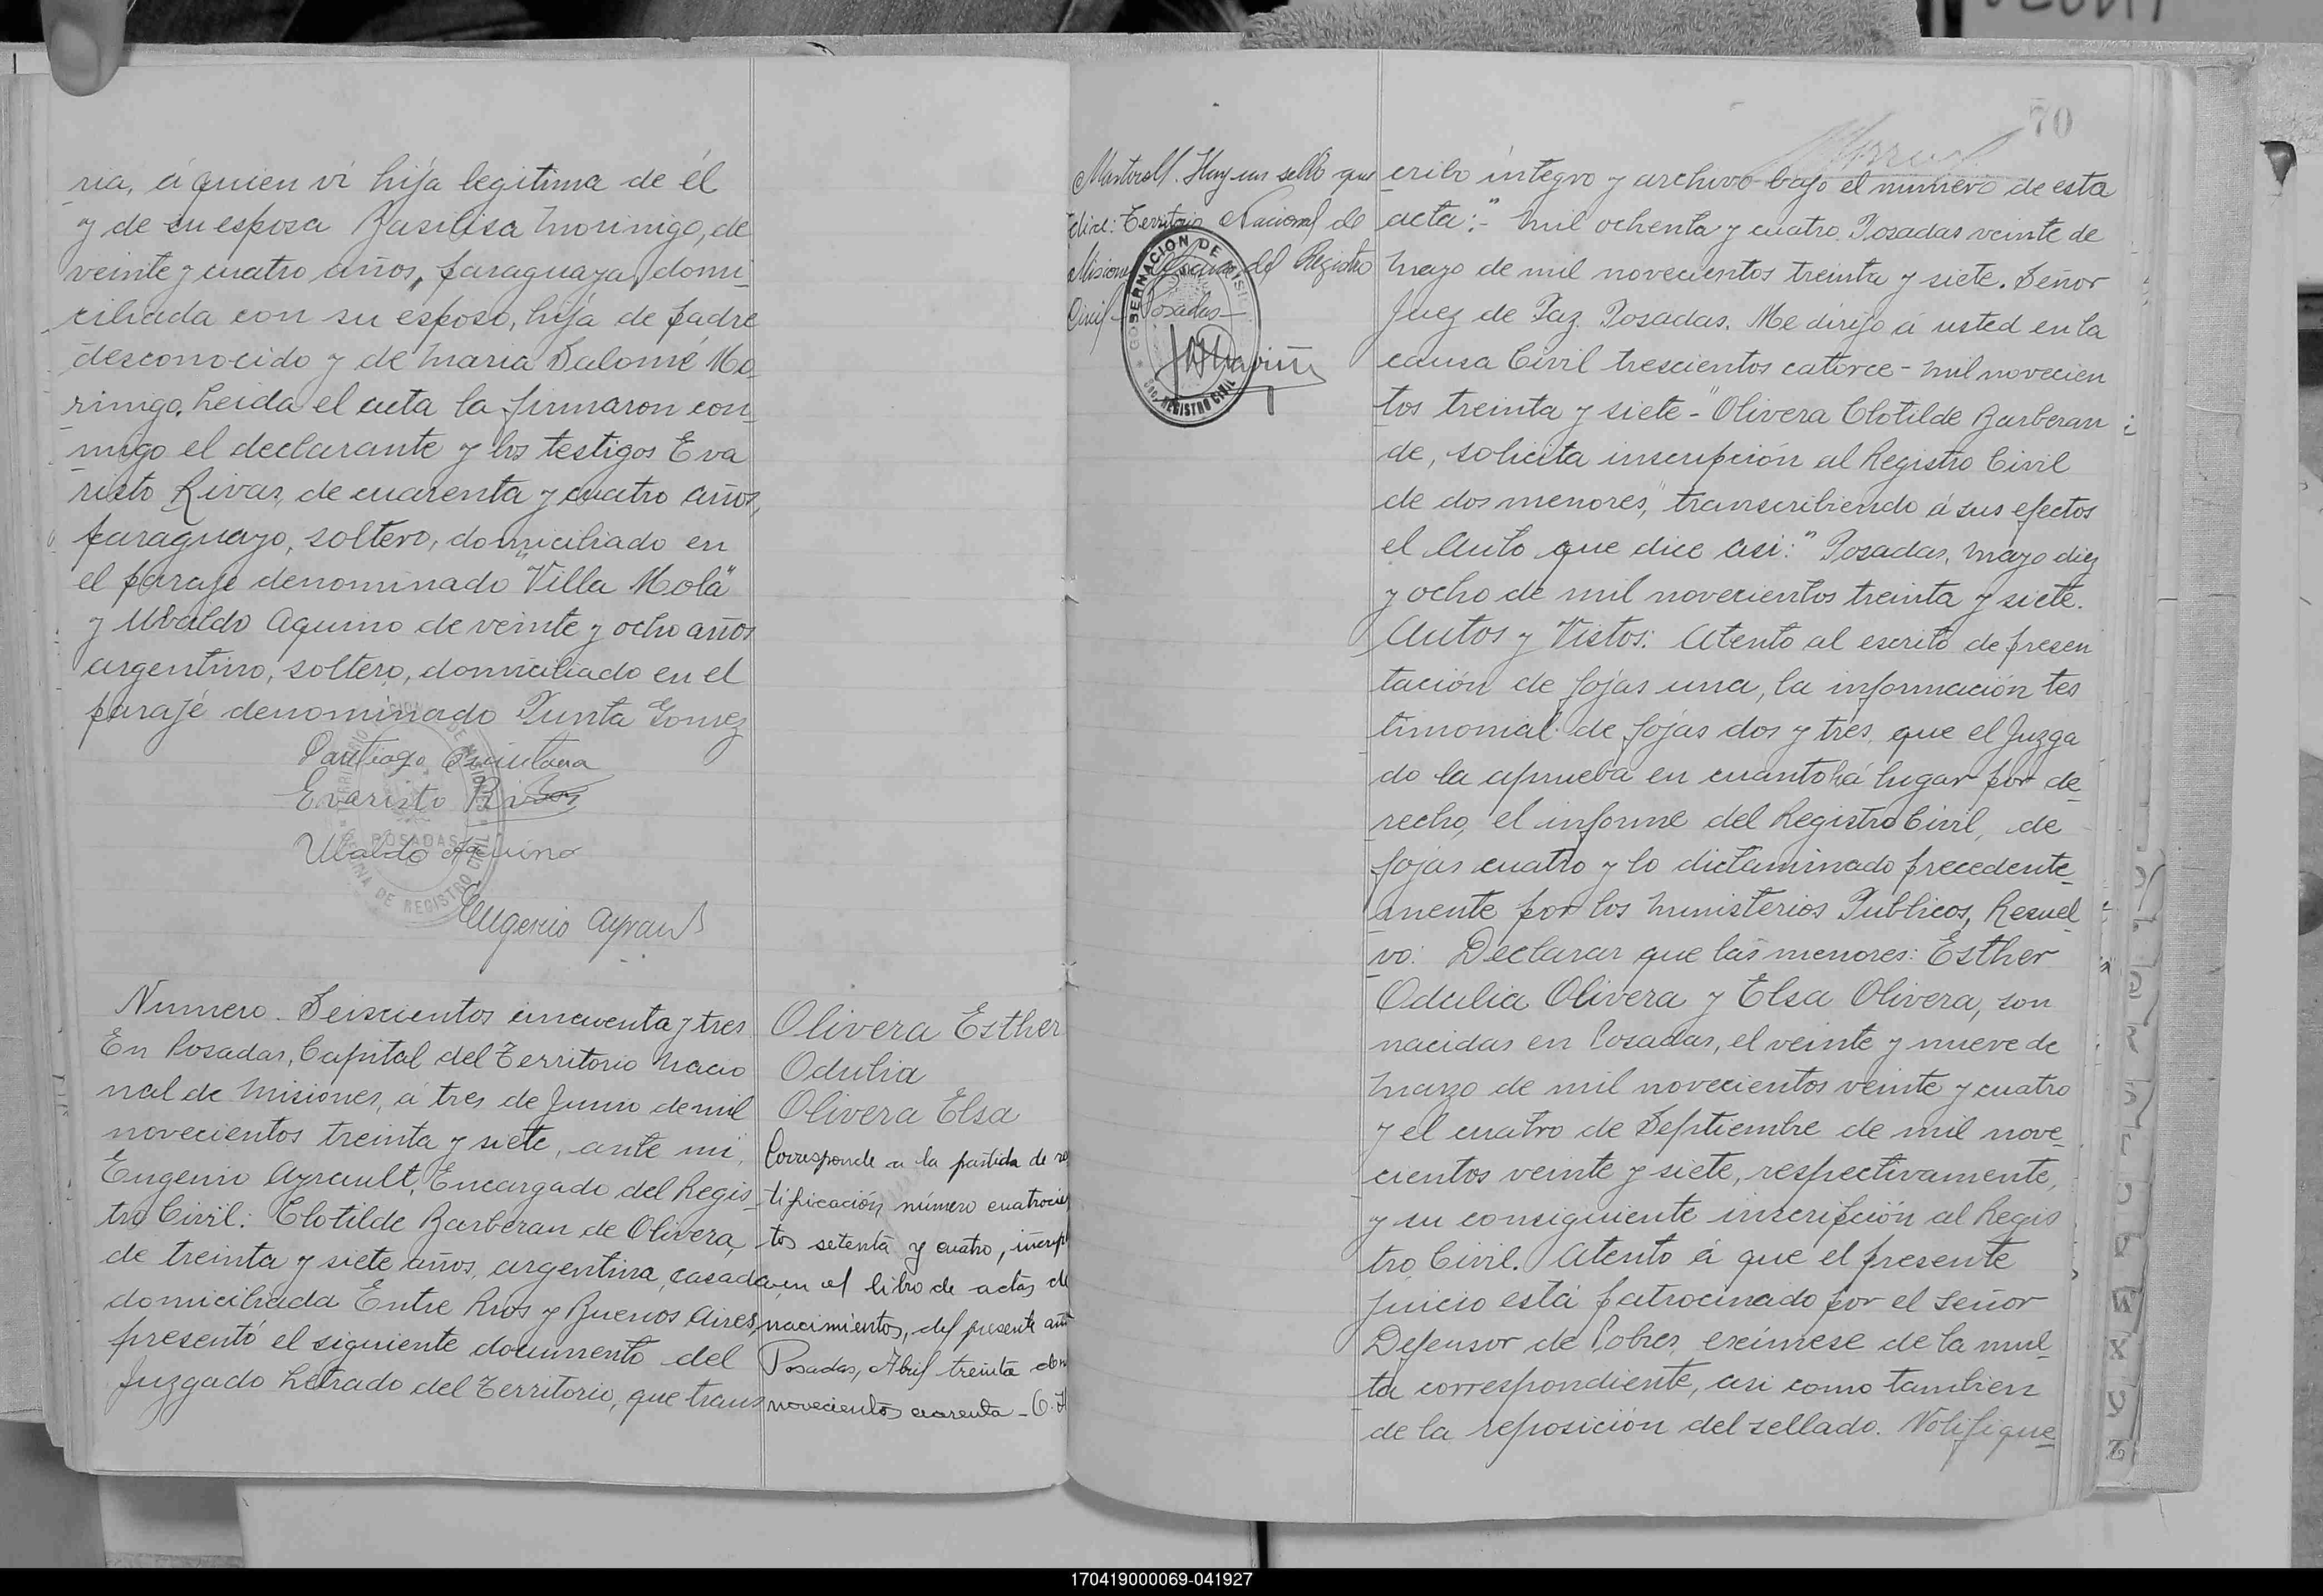 ria, á quien ví hija legitima de él
y de su esposa Basilisa Morinigo, de
veinte y cuatro años, paraguaya, domi-
ciliada con su esposo, hija de padre
desconocido y de Maria Salomé Mo-
rinigo. Leida el acta la firmaron con-
migo el declarante y los testigos Eva
risto Rivas, de cuarenta y cuatro años,
paraguayo, soltero, domiciliado en
el paraje denominado "Villa Molá"
y Ubaldo Aquino de veinte y ocho años
argentino, soltero, domiciliado en el
paraje denominado Punta Gomez
Santiago Quintana
Evaristo Rivas
Ubaldo Aquino
POSADAS
DE REGISTRO CIVIL
Eugenio Ayrault
Numero Seiscientos cincuenta y tres
En Posadas, Capital del Territorio Nacio
nal de Misiones, á tres de Junio de mil
novecientos treinta y siete, ante mi,
Eugenio Ayrault, Encargado del Regis-
tro Civil: Clotilde Barberan de Olivera,
de treinta y siete años, argentina, casada,
domiciliada Entre Rios y Buenos Aires,
presentó el siguiente documento del
Juzgado Letrado del Territorio, que trans
Olivera Esther
Odulia
Olivera Elsa
Corresponde a la partida de re
tificación número cuatrocie
tos setenta y cuatro, inscrip
en el libro de actas de
nacimientos, del presente año
Posadas, Abril treinta de
novecientos cuarenta -
Hay un sello que
dice: Territorio Nacional de
Misiones Oficina del Registro
Civil - Posadas -
GOBERNACION DE MISI
REGISTRO CIVIL
70
cribo integro y archivo bajo el numero de esta
acta:- "Mil ochenta y cuatro. Posadas veinte de
Mayo de mil novecientos treinta y siete. Señor
Juez de Paz. Posadas. Me dirijo á usted en la
causa Civil trescientos catorce - mil novecien
tos treinta y siete - "Olivera Clotilde Barberan
de, solicita inscripción al Registro Civil
de dos menores," transcribiendo á sus efectos
el Auto que dice asi: "Posadas, Mayo diez
y ocho de mil novecientos treinta y siete.
Autos y Vistos: Atento al escrito de presen
tación de fojas una, la información tes
timonial de fojas dos y tres, que el Juzga
do la aprueba en cuanto há lugar por de-
recho, el informe del Registro Civil, de
fojas cuatro y lo dictaminado precedente-
mente por los Ministerios Publicos, Resuel-
vo: Declarar que las menores: Esther
Odulia Olivera y Elsa Olivera, son
nacidas en Posadas, el veinte y nueve de
Marzo de mil novecientos veinte y cuatro
y el cuatro de Septiembre de mil nove-
cientos veinte y siete, respectivamente,
y su consiguiente inscripción al Regis
tro Civil. Atento á que el presente
juicio está patrocinado por el Señor
Defensor de Pobres, exímese de la mul-
ta correspondiente, asi como tambien
de la reposición del sellado. Notifique-
W
X
Y
Z
170419000069-041927